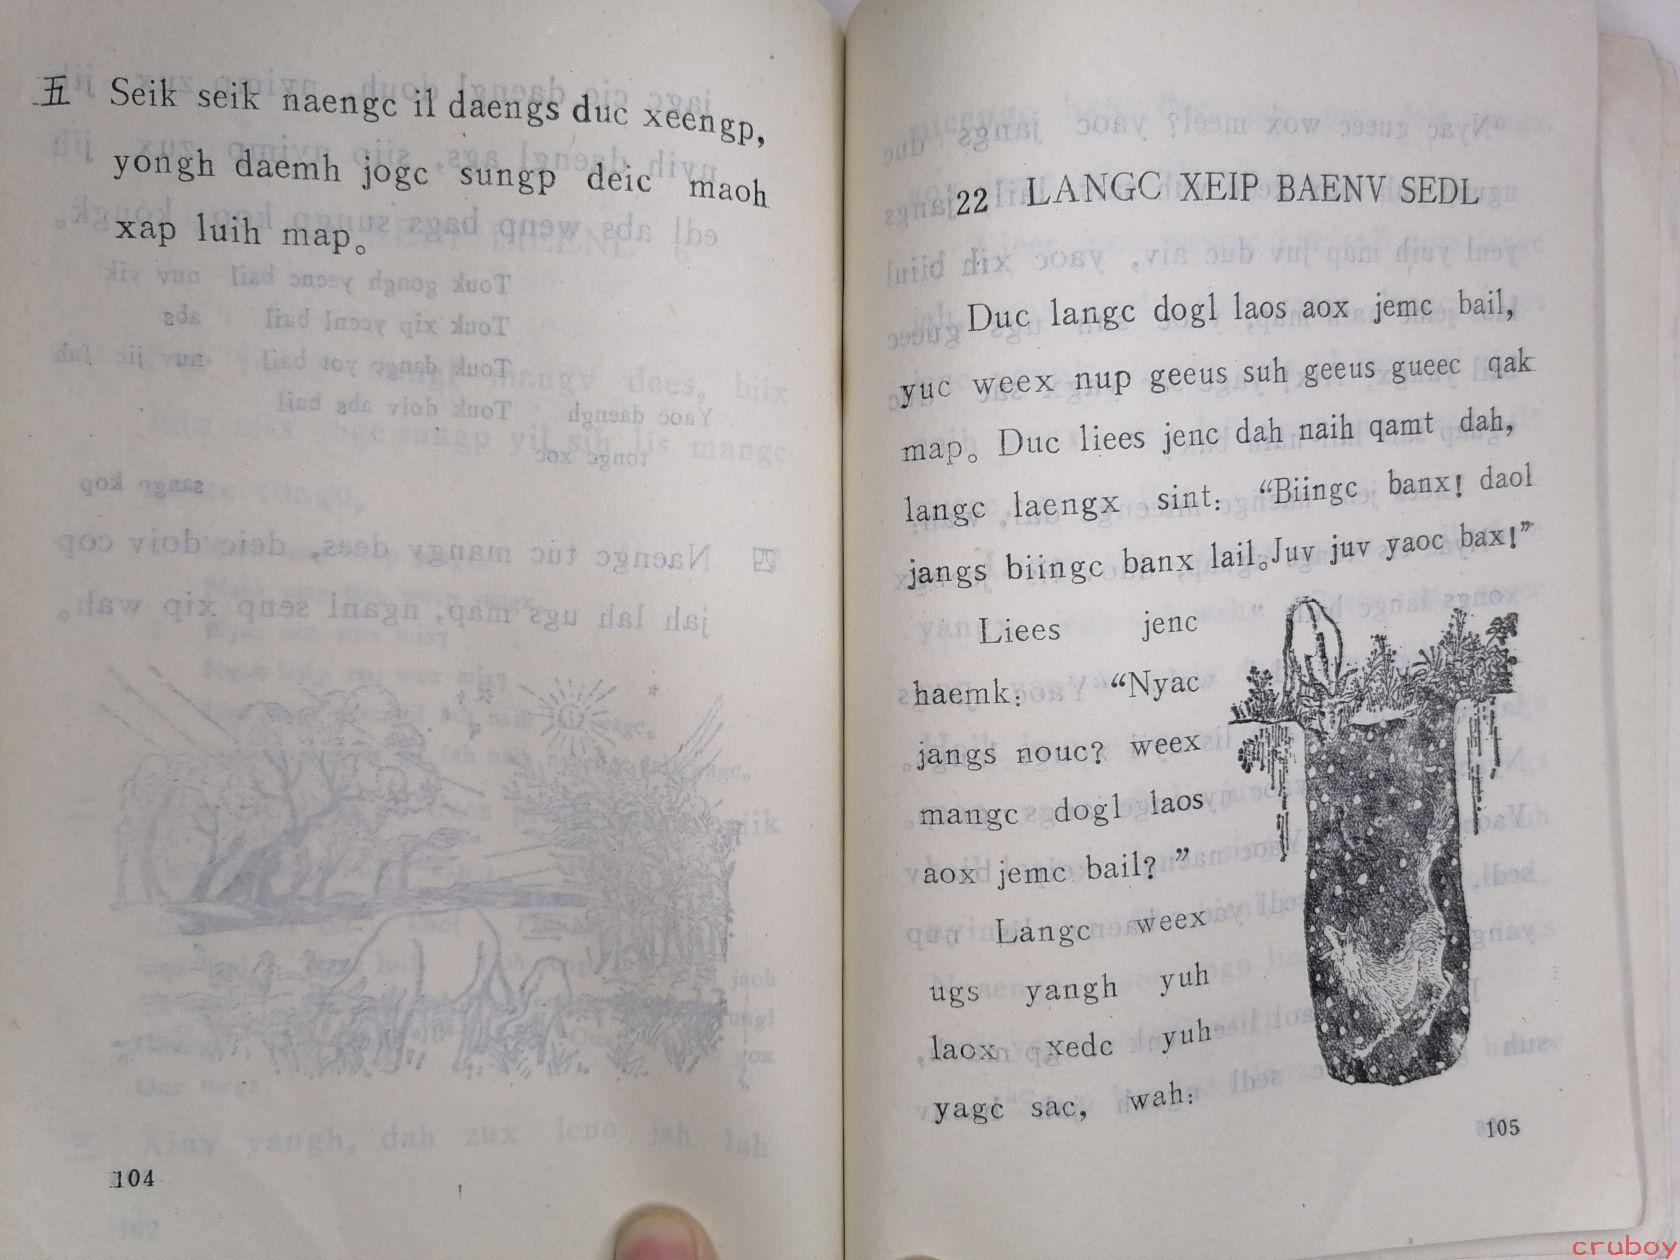 五 Seik seik naengc il daengs duc xeengp,
yongh daemh jogc sungp deic maoh
xap luih map。
104
22 LANGC XEIP BAENV SEDL
Duc langc dogl laos aox jemc bail,
yuc weex nup geeus suh geeus gueec qak
map。Duc lieesjenc dah naih qamt dah,
langc laengx sint: “Biingc banx! daol
jangs biingc banx lail。Juv juv yaoc bax!”
Liees jenc
haemk: “Nyac
jangs nouc? weex
mangc dogl laos
aox jemc bail?”
Langc weex
ugs yangh yuh
laox xedc yuh
yagc sac, wah:
105
cruboy